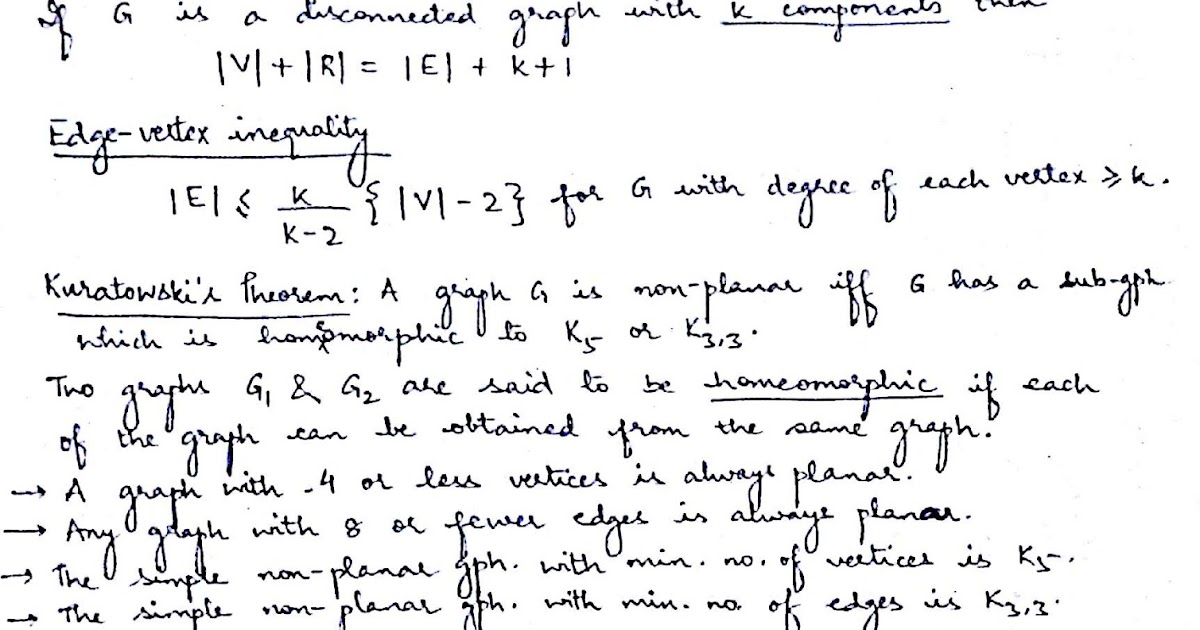 If G is a disconnected graph with k components then
|V| + |R| = |E| + k+1
Edge-vertex inequality
|E| ≤ k/(k-2) {|V| - 2} for G with degree of each vertex ≥ k.
Kuratowski's Theorem: A graph G is non-planar iff G has a sub-gph
which is homeomorphic to K5 or K3,3.
Two graphs G1 & G2 are said to be homeomorphic if each
of the graph can be obtained from the same graph.
→ A graph with 4 or less vertices is always planar.
→ Any graph with 8 or fewer edges is always planar.
→ The simple non-planar gph. with min. no. of vertices is K5.
→ The simple non-planar gph. with min. no. of edges is K3,3.